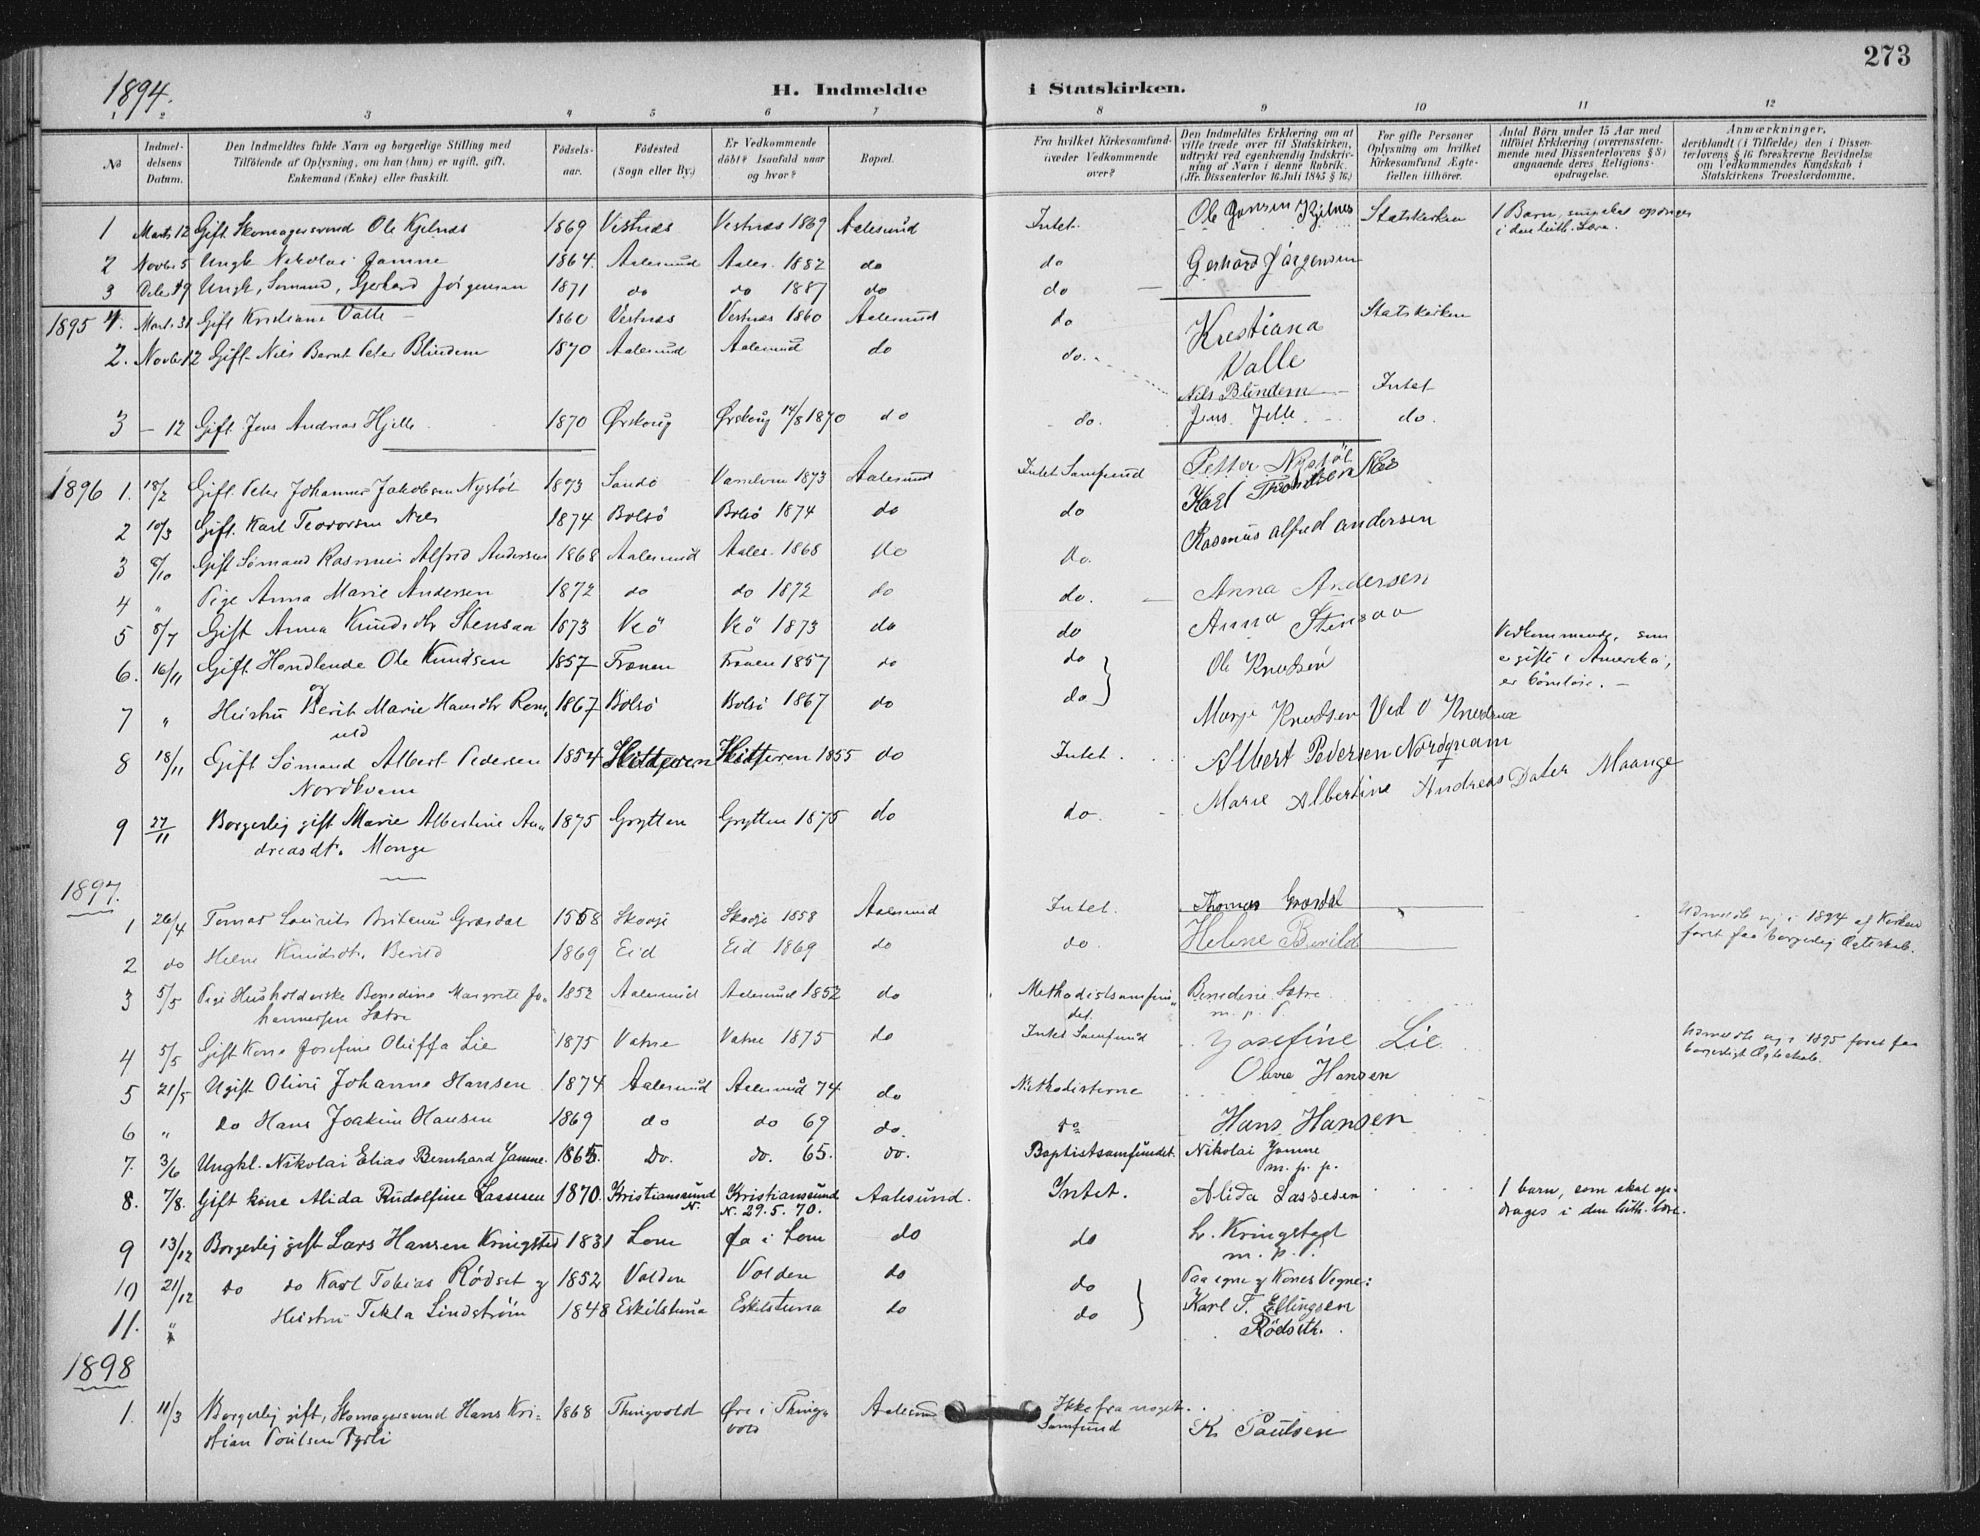 273
1894.
H. Indmeldte i Statskirken.
1 2 3 4 5 6 7 8 9 10 11 12
No
Indmel-
delsens
Datum.
Den Indmeldtes fulde Navn og borgerlige Stilling med
Tilföiende af Oplysning, om han (hun) er ugift, gift,
Enkemand (Enke) eller fraskilt.
Födsels-
aar.
Födested
(Sogn eller By.)
Er Vedkommende
döbt? Isaafald naar
og hvor?
Bopæl.
Fra hvilket Kirkesamfund
træder Vedkommende
over?
Den Indmeldtes Erklæring om at
ville træde over til Statskirken,
udtrykt ved egenhændig Indskriv-
ning af Navn i denne Rubrik.
(Jfr. Dissenterlov 16 Juli 1845 § 16.)
For gifte Personer
Oplysning om hvilket
Kirkesamfund Ægte-
fællen tilhörer.
Antal Börn under 15 Aar med
tilföiet Erklæring (overensstem-
mende med Dissenterlovens § 8)
angaaende deres Religions-
opdragelse.
Anmærkninger,
deriblandt (i Tilfælde) den i Dissen-
terlovens § 16 foreskrevne Bevidnelse
om Vedkommendes Kundskab i
Statskirkens Troeslærdomme.
1 Marts 12 Gift Skomagersvend Ole Kjelnæs 1869 Vestnæs Vestnæs 1869 Aalesund Intet. Ole Jensen Kjelnes Statskirken 1 Barn, som skal opdrages
i den luth. Lære.
2 Novbr 5 Ungk Nikolai Jamne 1864. Aalesund Aales. 1882 do do
3 Decbr 19 Ungk, Sømand, Gerhard Jørgensen 1871 do do 1887 do do Gerhard Jörgensen
1895 1. Marts 31 Gift Kristiane Valle 1860 Vestnæs Vestnæs 1860 Aalesund do Krestiana
Valle Statskirken
2. Novbr 12 Gift Nils Bernt Peter Blindem 1870 Aalesund Aalesund do do. Nils Blindem Intet
3 - 12 Gift Jens Andreas Hjelle 1870 Ørskoug Ørskoug 14/8 1870 do do. Jens Jelle do.
1896 1. 18/2 Gift Peter Johannes Jakobsen Nystöl 1873 Sandö 1873 Aalesund Intet Samfund Petter Nystöl
2 10/3 Gift Karl Teodorsen Næs 1874 Bolsö Bolsö 1874 do do Karl Næs
3 8/10 Gift Sömand Rasmus Alfred Andersen 1868 Aalesund Aales. 1868 do do. Rasmus alfred andersen
4 " Pige Anna Marie Andersen 1872 do do 1872 do do. Anna Andersen
5 8/7 Gift Anna Knudsdtr Stensaa 1873 Veö Veö 1873 do do Anna Stensaa
6. 16/11 Gift Handlende Ole Knudsen 1857 Frænen Frænen 1857 do do Ole Knudsen Vedkommende, som
er gifte i Amerika,
er börnløse.
7 " Hustru Berit Marie Hansdtr 1867 Bolsö Bolsö 1867 do do Marje Knudsen Ved O Knudsen
8 18/11 Gift Sömand Albert Pedersen
Nordkvam 1854 Hitteren Hitteren 1855 do Intet. Albert Pedersen Nordqvam
9 27/11 Borgerlig gift Marie Albertine An-
dreasdt. Monge 1875 Grytten Grytten 1875 do do. Marie Albertine Andreas Dater Maange
1897.
1 26/4 Tomas Laurits Græsdal 1858 Skodje Skodje 1858 Aalesund Intet. Thomas Græsdal Udmeldte sig i 1894 af Kirken
foret faa borgerlig Ægteskab.
2 do Helene Knudsdtr. Berild 1869 Eid Eid 1869 do do. Helene Berild
3 5/5 Pige Husholderske Benedine Margrete Jo-
hannessen Sætre 1852 Aalesund Aalesund 1852 do Methodistsamfun-
det. Benedine Sætre
m. p. p.
4 5/5 Gift Kone Josefine Oluffa Lie 1875 Vatne Vatne 1875 do Intet Samfund Yosefine Lie Udmeldte sig i 1895 foret faa
borgerligt Ægteskab.
5 21/5 Ugift Olive Johanne Hansen 1874 Aalesund Aalesund 74 do Methodisterne Olive Hansen
6 " do Hans Joakim Hansen 1869 do do 69 do. do Hans Hansen
7. 3/6 Ungkl. Nikolai Elias Bernhard Jamne. 1865. Do. do. 65. do. Baptistsamfundet. Nikolai Jamne
m. p. p.
8. 7/8. Gift kone Alida Rudolfine Lassesen 1870. Kristiansund
N. Kristiansund
N. 29.5.70. Aalesund. Intet. Alida Lassesen 1 barn, som skal op-
drages i den luth. lære.
9 13/12 Borgerlig gift Lars Hansen Kringsted 1831 Lom Lom do do L. Kringstad
m. p. p.
10 21/12 do do Karl Tobias Rödset og 1852 Volden Volden do do Paa egne og Kones Vegne:
11. " Hustru Tekla Lindström 1848 Eskilstuna Eskilstuna do do Karl T. Ellingsen
Rödseth.
1898
1. 11/3 Borgerlig gift, Skomagersvend Hans Kri-
stian Poulsen 1868 Thingvold Öre i Thing-
vold Aalesund Ikke fra noget
Samfund K. Paulsen